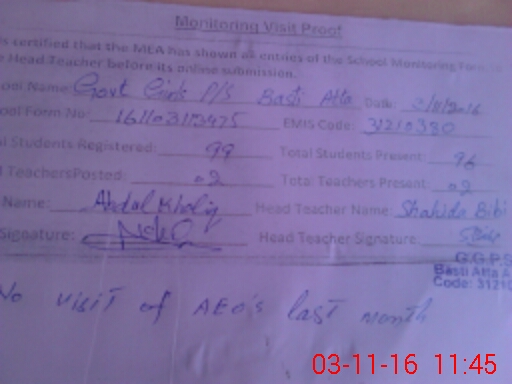 Monitoring Visit Proof
is certified that the MEA has shown all entries of the School Monitoring Form
Head Teacher before its online submission.
ool Name: Govt Girls P/S Basti Atta Date: 3/11/2016
ool Form No: EMIS Code: 31210330
al Students Registered: 99 Total Students Present: 96
l TeachersPosted: 02 Total Teachers Present: 02
Name: Abdul Khaliq Head Teacher Name: Shahida Bibi
Signature: Head Teacher Signature:
G.G.P.S
Basti Atta A
Code: 3121
No visit of AEO's last month
03-11-16 11:45